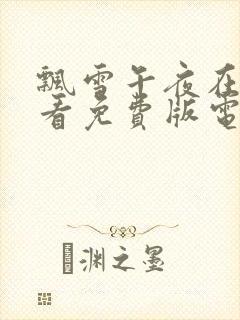 飄雪午夜在
看免費版電
渊之墨